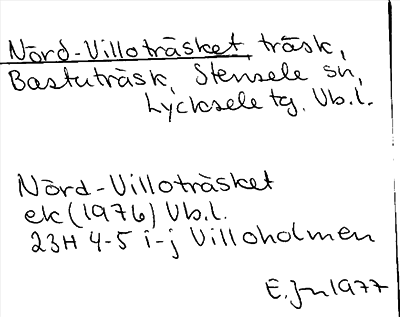 Nörd-Villoträsket, träsk,
Bastuträsk, Stensele sn,
Lycksele tg, Vb.l.
Nörd-Villoträsket
ek (1976) Vb.l.
23H 4-5 i-j Villoholmen
E. Jn 1977